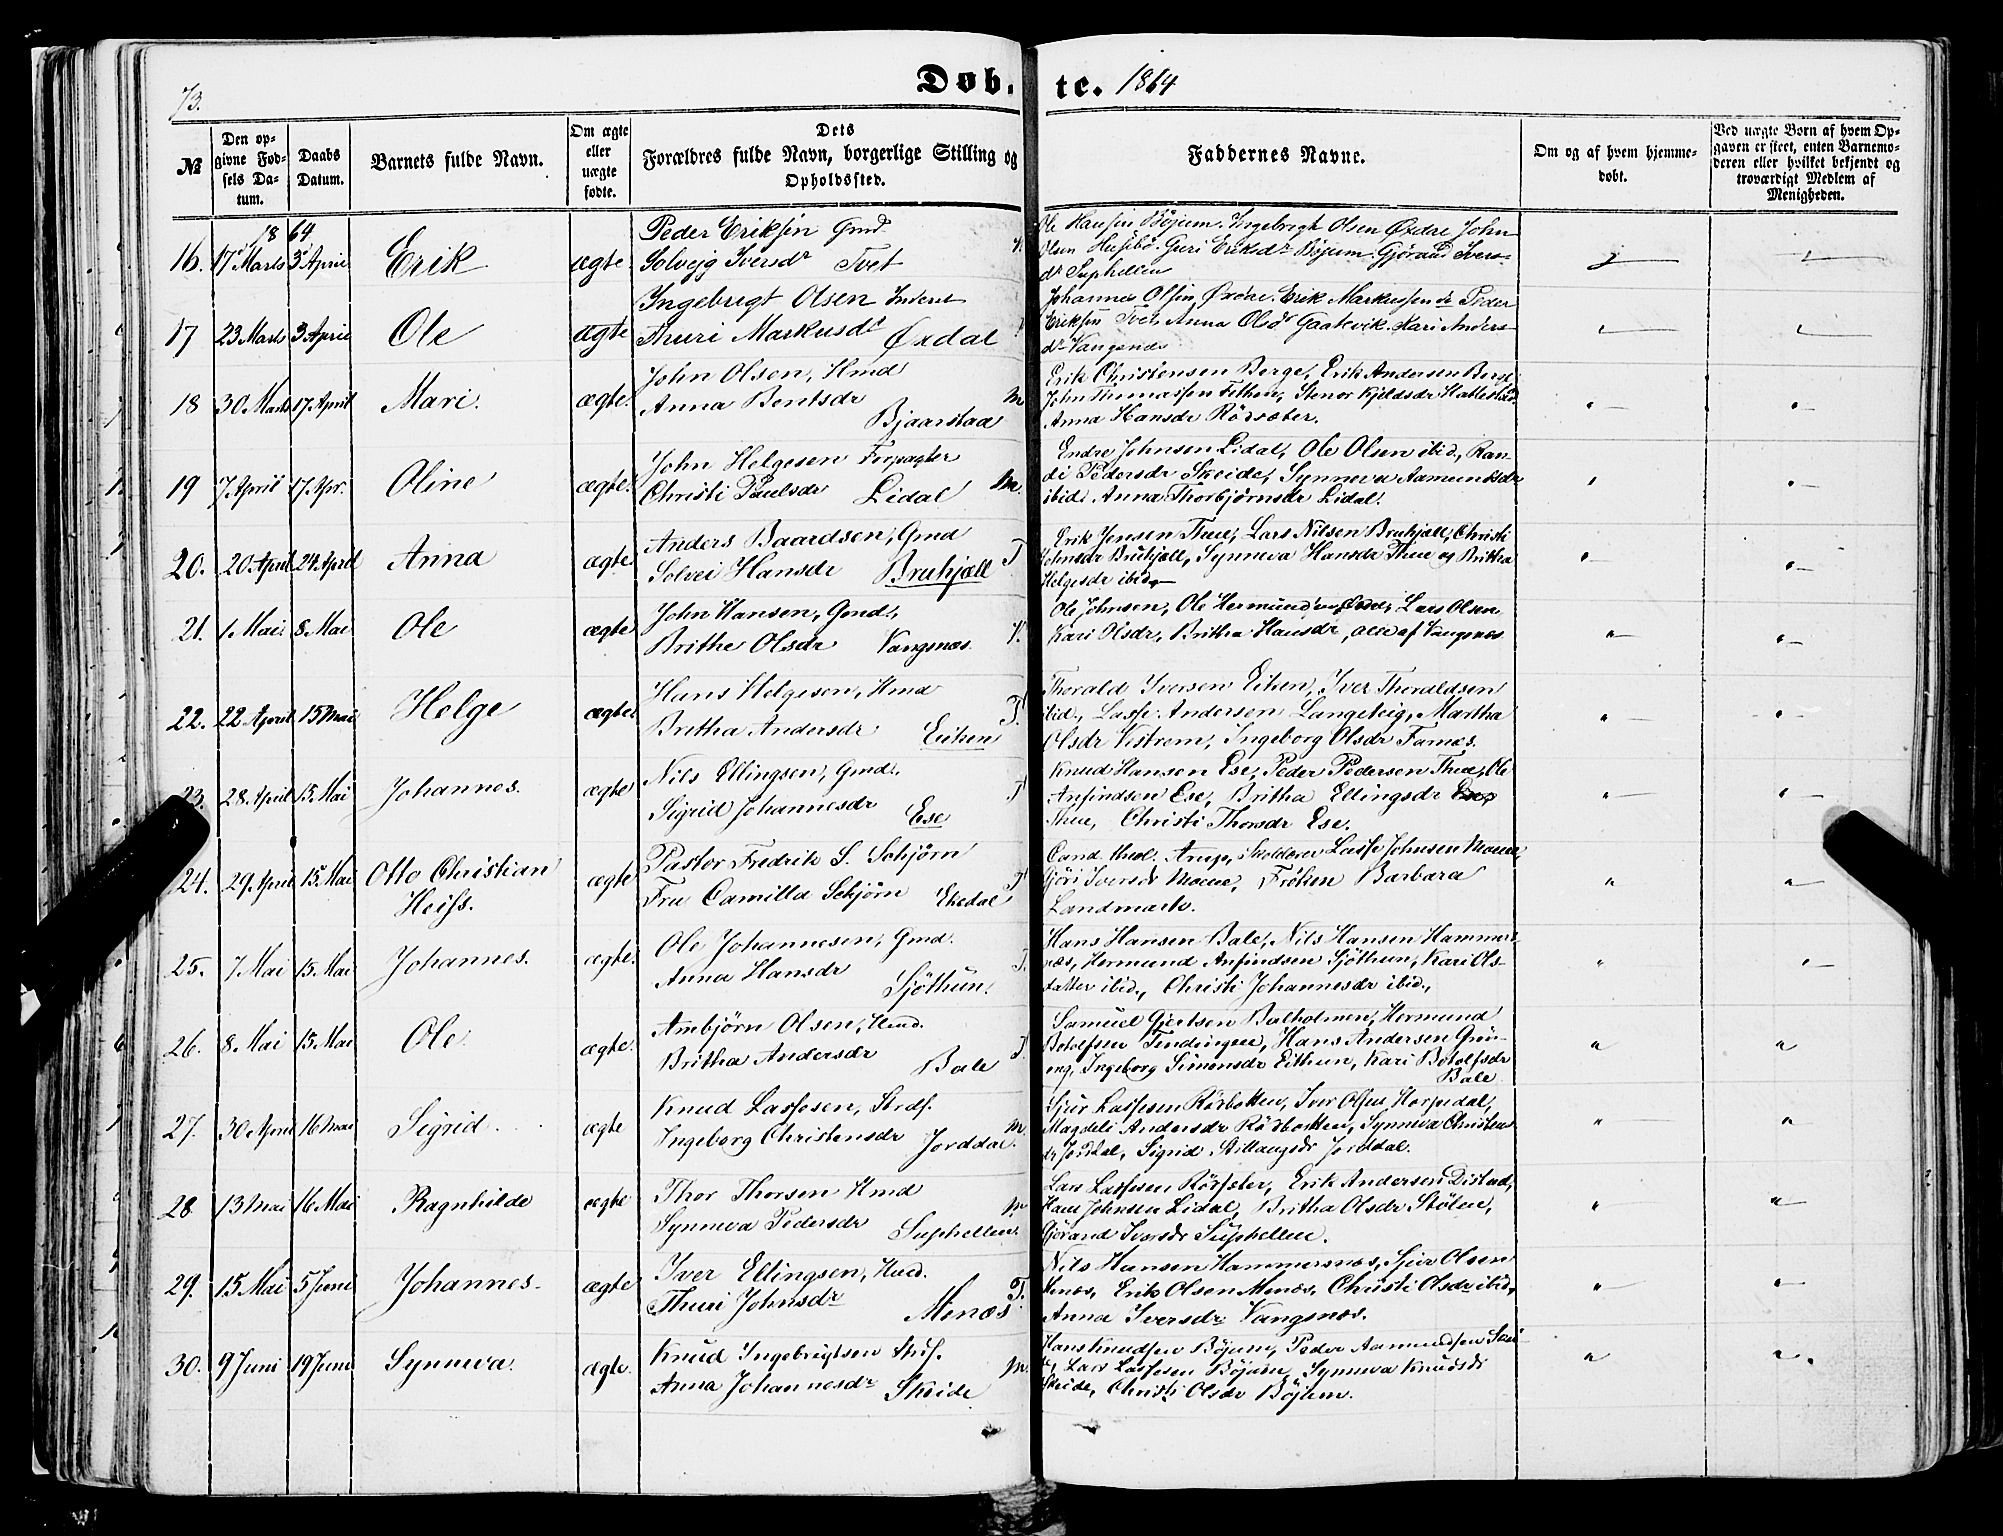 73.
Døb. te. 1864
№
Den op-
givne Fød-
sels Da-
tum.
Daabs
Datum.
Barnets fulde Navn.
Om ægte
eller
uægte
fødte.
Dets
Forældres fulde Navn, borgerlige Stilling og
Opholdssted.
Faddernes Navne.
Om og af hvem hjemme-
døbt.
Ved uægte Børn af hvem Op-
gaven er skeet, enten Barnemo-
deren eller hvilket bekjendt og
troværdigt Medlem af
Menigheden.
1864
16. 17 Marts 3 April Erik ægte
Peder Eriksen Gmd
Solvejg Iversdr Tvet
Ole Hansen Böjum. Ingebrigt Olsen Øxdre John
Olsen Husebö. Guri Eriksdr Böjum. Gjörand Ivers-
dr Suphellen
17 23 Marts 3 April Ole ægte
Ingebrigt Olsen Inderst
Thuri Markusdr Øxdal
Johannes Olsen Øxdal. Erik Markussen Peder
Eriksen Tvet, Anna Olsdr Kari Anders-
dr Vangsnæs
18 30 Marts 17 April Mari. ægte.
John Olsen, Hmd
Anna Beretsdr
Bjaarstad M
Erik Christensen Berge, Erik Andersen Berge
John Thomassen Kjeldsdr
Anna Hansdr Rödsæter.
19 7 April 17. Apr. Oline ægte.
John Helgesen Forpagter
Christi Paulsdr Lidal M.
Endre Johnsen Lidal, Ole Olsen ibid., Ran-
di Pedersdr Skeide, Synneva Aamundsdr
ibid. Anna Thorbjörnsdr Lidal.
20. 20 April 24 April Anna ægte
Anders Baardsen, Gmd
Solvei Hansdr Bruhjell T
Erik Jensen Thue, Lars Nilsen Bruhjell, Christi
Johnsdr Bruhjell, Synneva Hansdr Thue og Britha
Helgesdr ibid.
21. 1. Mai 8. Mai Ole ægte
John Hansen, Gmd.,
Brithe Olsdr Vangsnæs V.
Ole Johnsen, Ole Lars Olsen
Kari Olsdr, Britha Hansdr, alle af Vangsnæs
22. 22 April 15 Mai Helge ægte
Hans Helgesen, Hmd
Britha Andersdr Eithen T.
Thorald Iversen Eiken, Iver Thoraldsen
ibid., Lasse Andersen Langeteig, Martha
Olsdr Vestrem, Ingeborg Olsdr Farnæs.
23. 28 April 15. Mai Johannes. ægte
Nils Ellingsen, Gmd.
Sigrid Johannesdr Ese T
Knud Hansen Ese, Peder Pedersen Thue, Ole
Anfindsen Ese, Britha Ellingsdr
Thue, Christi Thorsdr Ese.
24. 29 April 15. Mai Otto Christian ægte
Heiss.
Pastor Fredrik S. Schjörn
Fru Camilla Schjörn T
Cand. theol. Lasse Johnsen
Iversdr Fröken Barbara
Landmark.
25. 7 Mai 15. Mai Johannes. ægte.
Ole Johannesen, Gmd.
Anna Hansdr Sjöthun. T.
Hans Hansen Bale, Nils Hansen Hammers-
næs, Hermund Anfindsen Sjöthun, Kari Ols-
datter ibid., Christi Johannesdr ibid.,
26. 8 Mai 15 Mai Ole ægte.
Ambjörn Olsen, Hmd.
Britha Andersdr Bale T.
Samuel Gjertsen Balholmen, Hermund
Botolfsen Tendingen, Hans Andersen Grön-
eng, Ingeborg Simensdr Eithun, Kari Botolfsdr
Bale
27. 30 April 16 Mai Sigrid ægte
Knud Lassesen, Strdf.
Ingeborg Christensdr Jorddal. M
Sjur Lassesen Rörbotten, Iver Olsen
Magdeli Andersdr Rörbotten, Synneva Christens-
dr Jorddal, Sigrid Jorddal.
28. 13 Mai 16 Mai Ragnhilde ægte
Thor Thorsen Hmd
Synneva Pedersdr Suphellen. M
Lars Lassesen Rörsæter, Erik Andersen Distad,
Hans Johnsen Lidal, Britha Olsdr Stölen,
Gjörand Iversdr Suphellen.
29. 15 Mai 5 Juni Johannes. ægte
Iver Ellingsen, Hmd.
Thuri Johnsdr Menæs T.
Nils Hansen Hammersnæs, Sjur Olsen
Menæs, Erik Olsen Menæs, Christi Olsdr ibid,
Anna Iversdr Vangsnæs.
30. 9 Juni 19 Juni Synneva. ægte.
Knud Ingebrigtsen
Anna Johannesdr Skeide M.
Hans Knudsen Böjum, Peder Aamundsen Skei-
de, Lars Lassesen Böjum, Synneva Knudsdr
Skeide, Christi Olsdr Böjum.